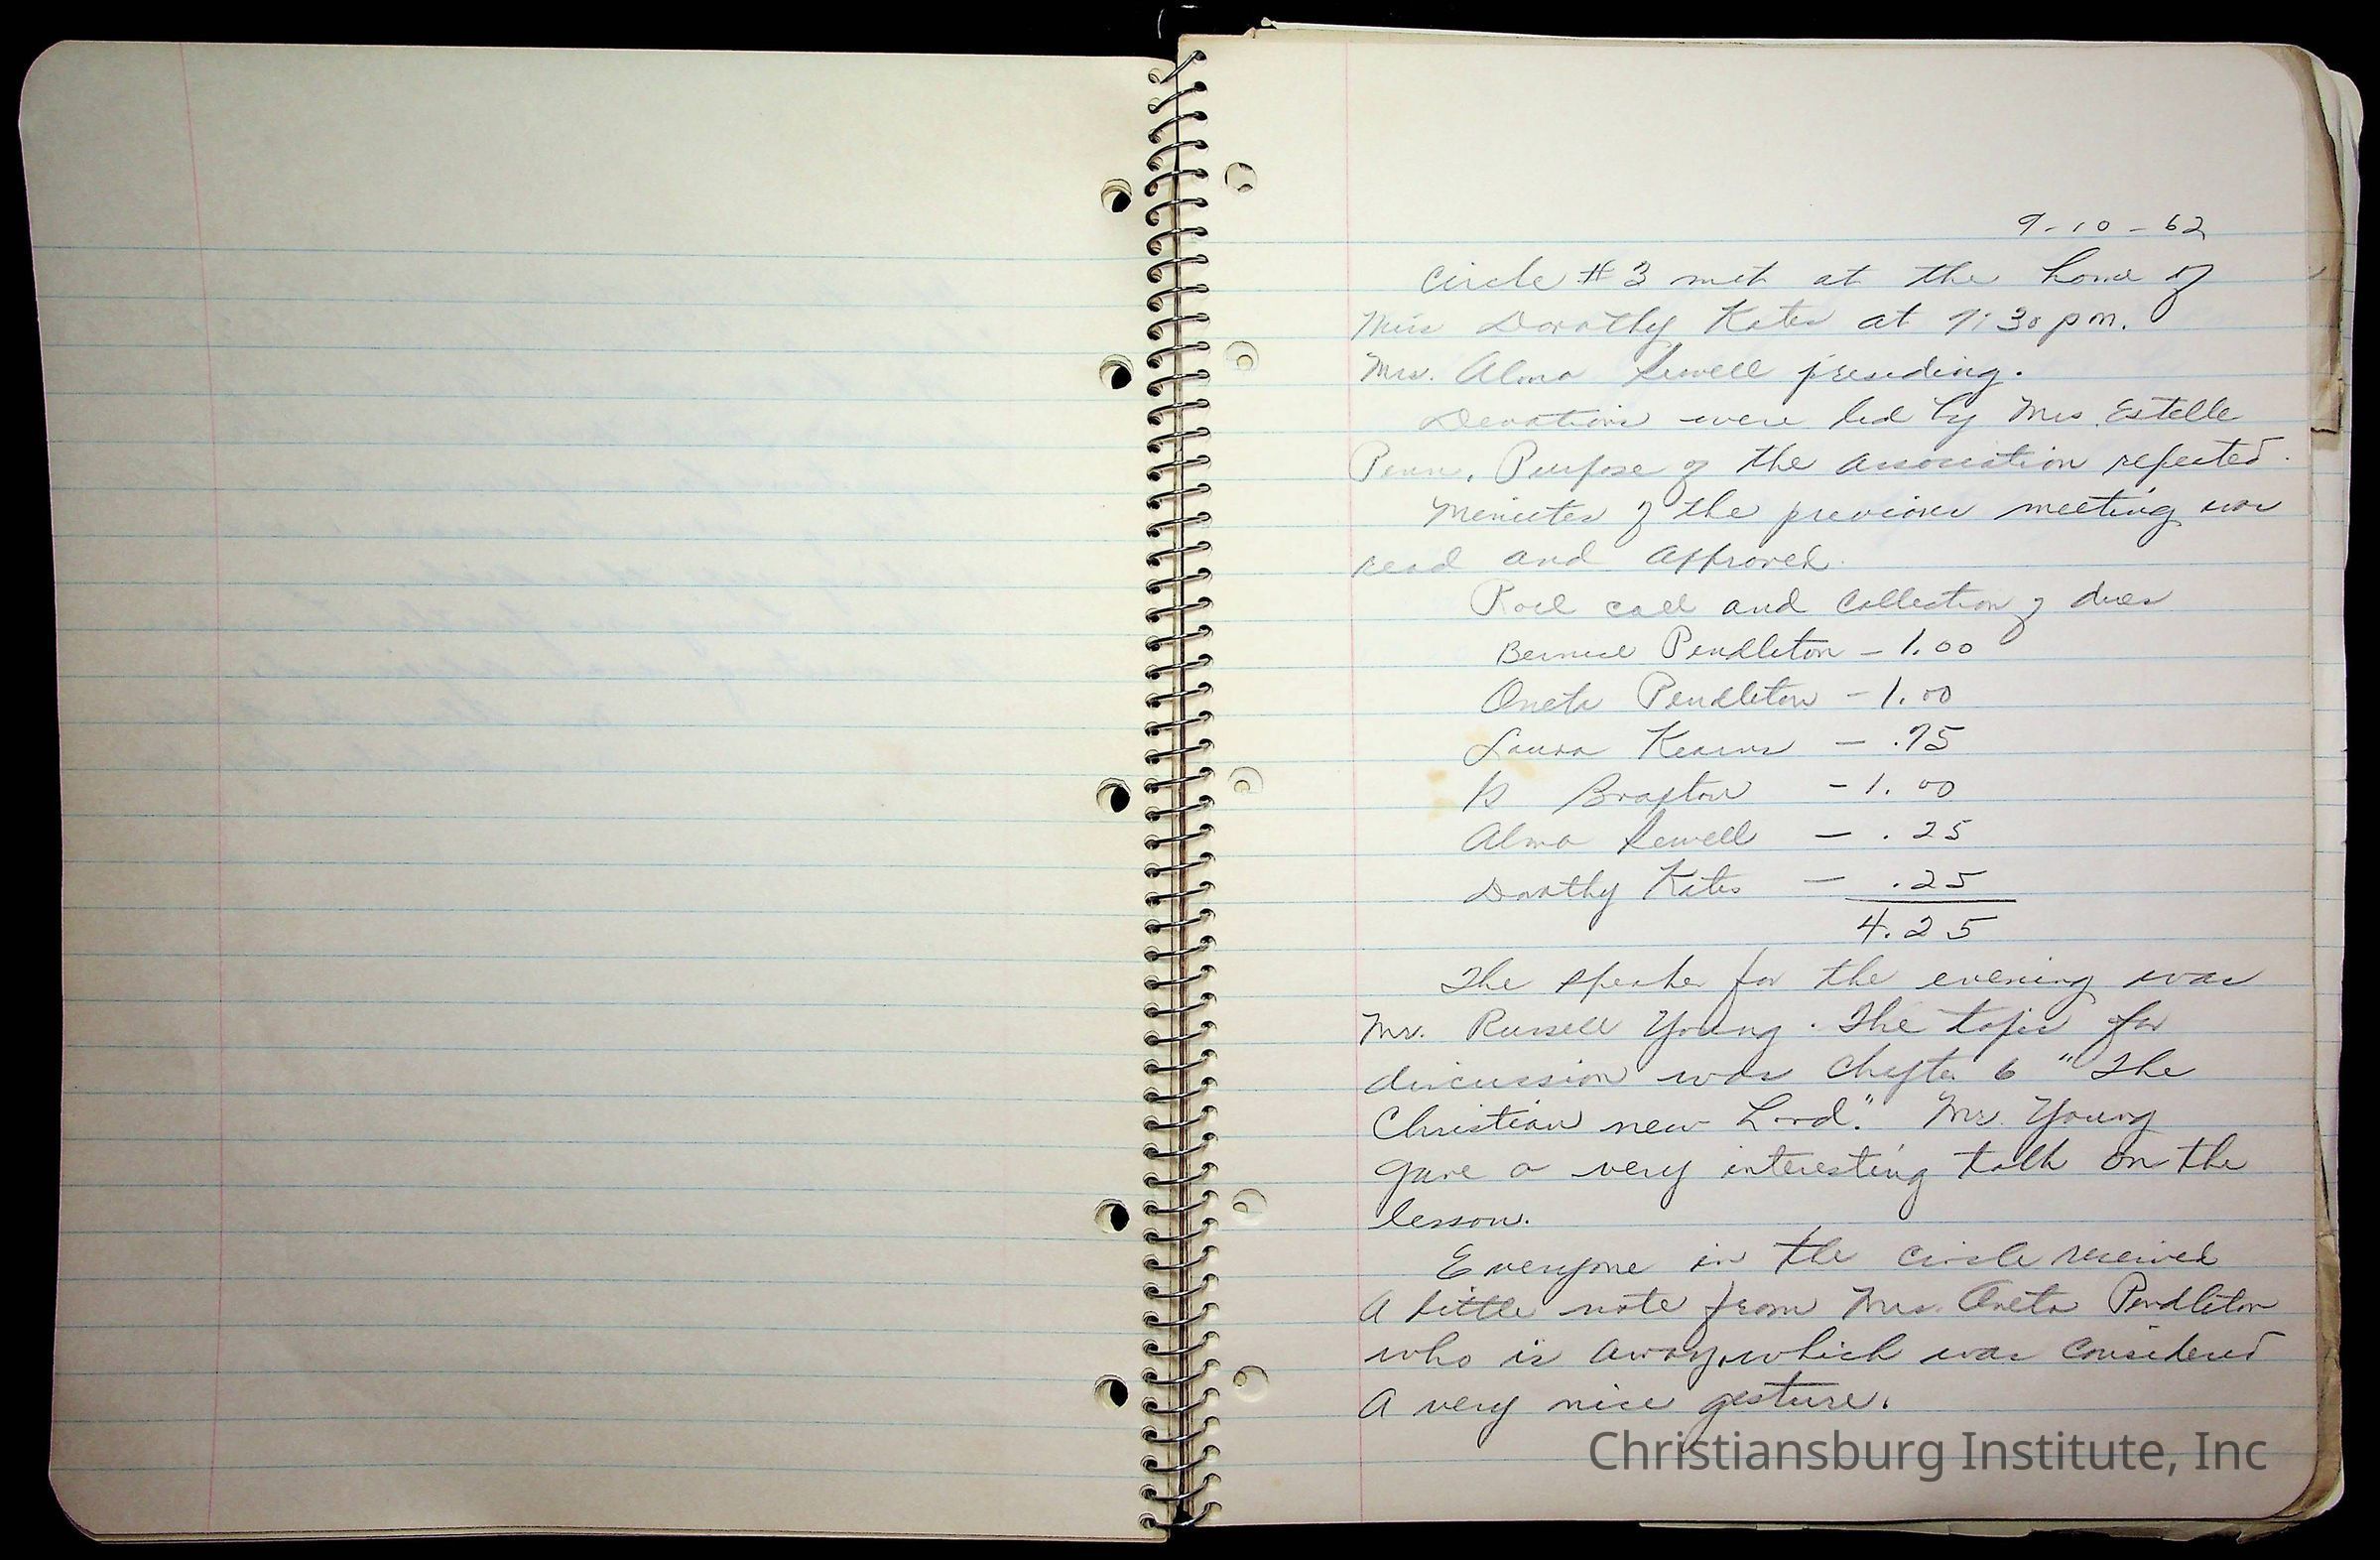 9-10-62
Circle #3 met at the home of
Miss Dorothy Kates at 7:30 pm.
Mrs. Alma Sewell presiding.
Devotions were led by Mrs. Estelle
Penn. Purpose of the association repeated.
Minutes of the previous meeting was
read and approved.
Roll call and collection of dues
Bernice Pendleton - 1.00
Oneta Pendleton - 1.00
Laura Kearns - .75
B Braxton - 1.00
Alma Sewell - .25
Dorothy Kates - .25
4.25
The speaker for the evening was
Mr. Russell Young. The topic for
discussion was Chapter 6 "The
Christian new Lord." Mr. Young
gave a very interesting talk on the
lesson.
Everyone in the circle received
a little note from Mrs. Oneta Pendleton
who is away, which was considered
a very nice gesture.
Christiansburg Institute, Inc